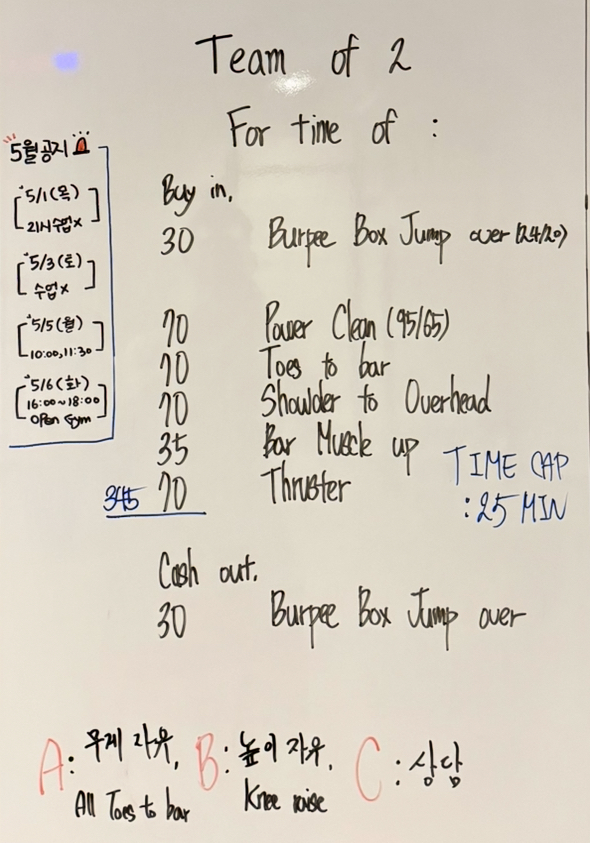 Team of 2
For time of :
5월 공지
5/1(목)
21시 수업x
5/3(토)
수업x
5/5(월)
10:00, 11:30
5/6(화)
16:00~18:00
Open Gym
Buy in,
30 Burpee Box Jump over (24/20)
70 Power Clean (95/65)
70 Toes to bar
70 Shoulder to Overhead
35 Bar Muscle up
345 70 Thruster
TIME CAP
: 25 MIN
Cash out,
30 Burpee Box Jump over
A: 무게 자유, B: 높이 자유, C: 상담
All Toes to bar Knee raise